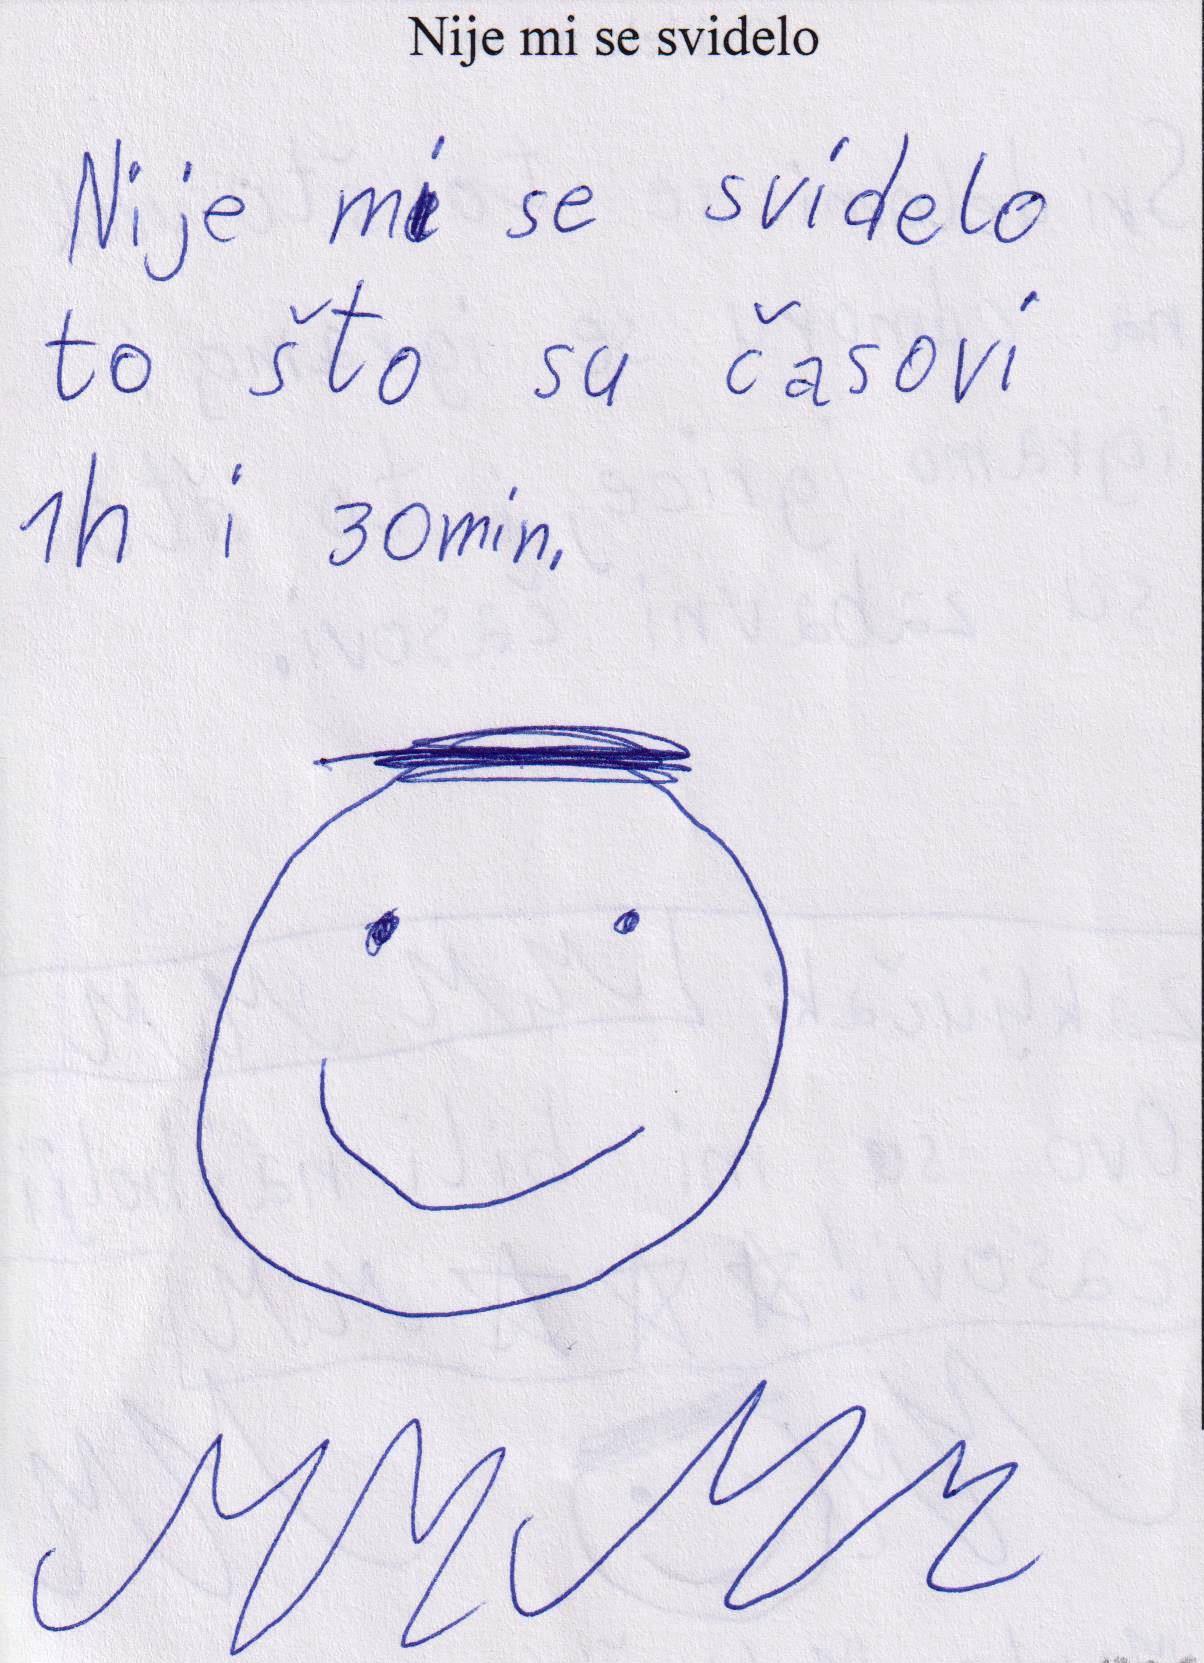 Nije mi se svidelo
Nije mi se svidelo
to što su časovi
1h i 30min.